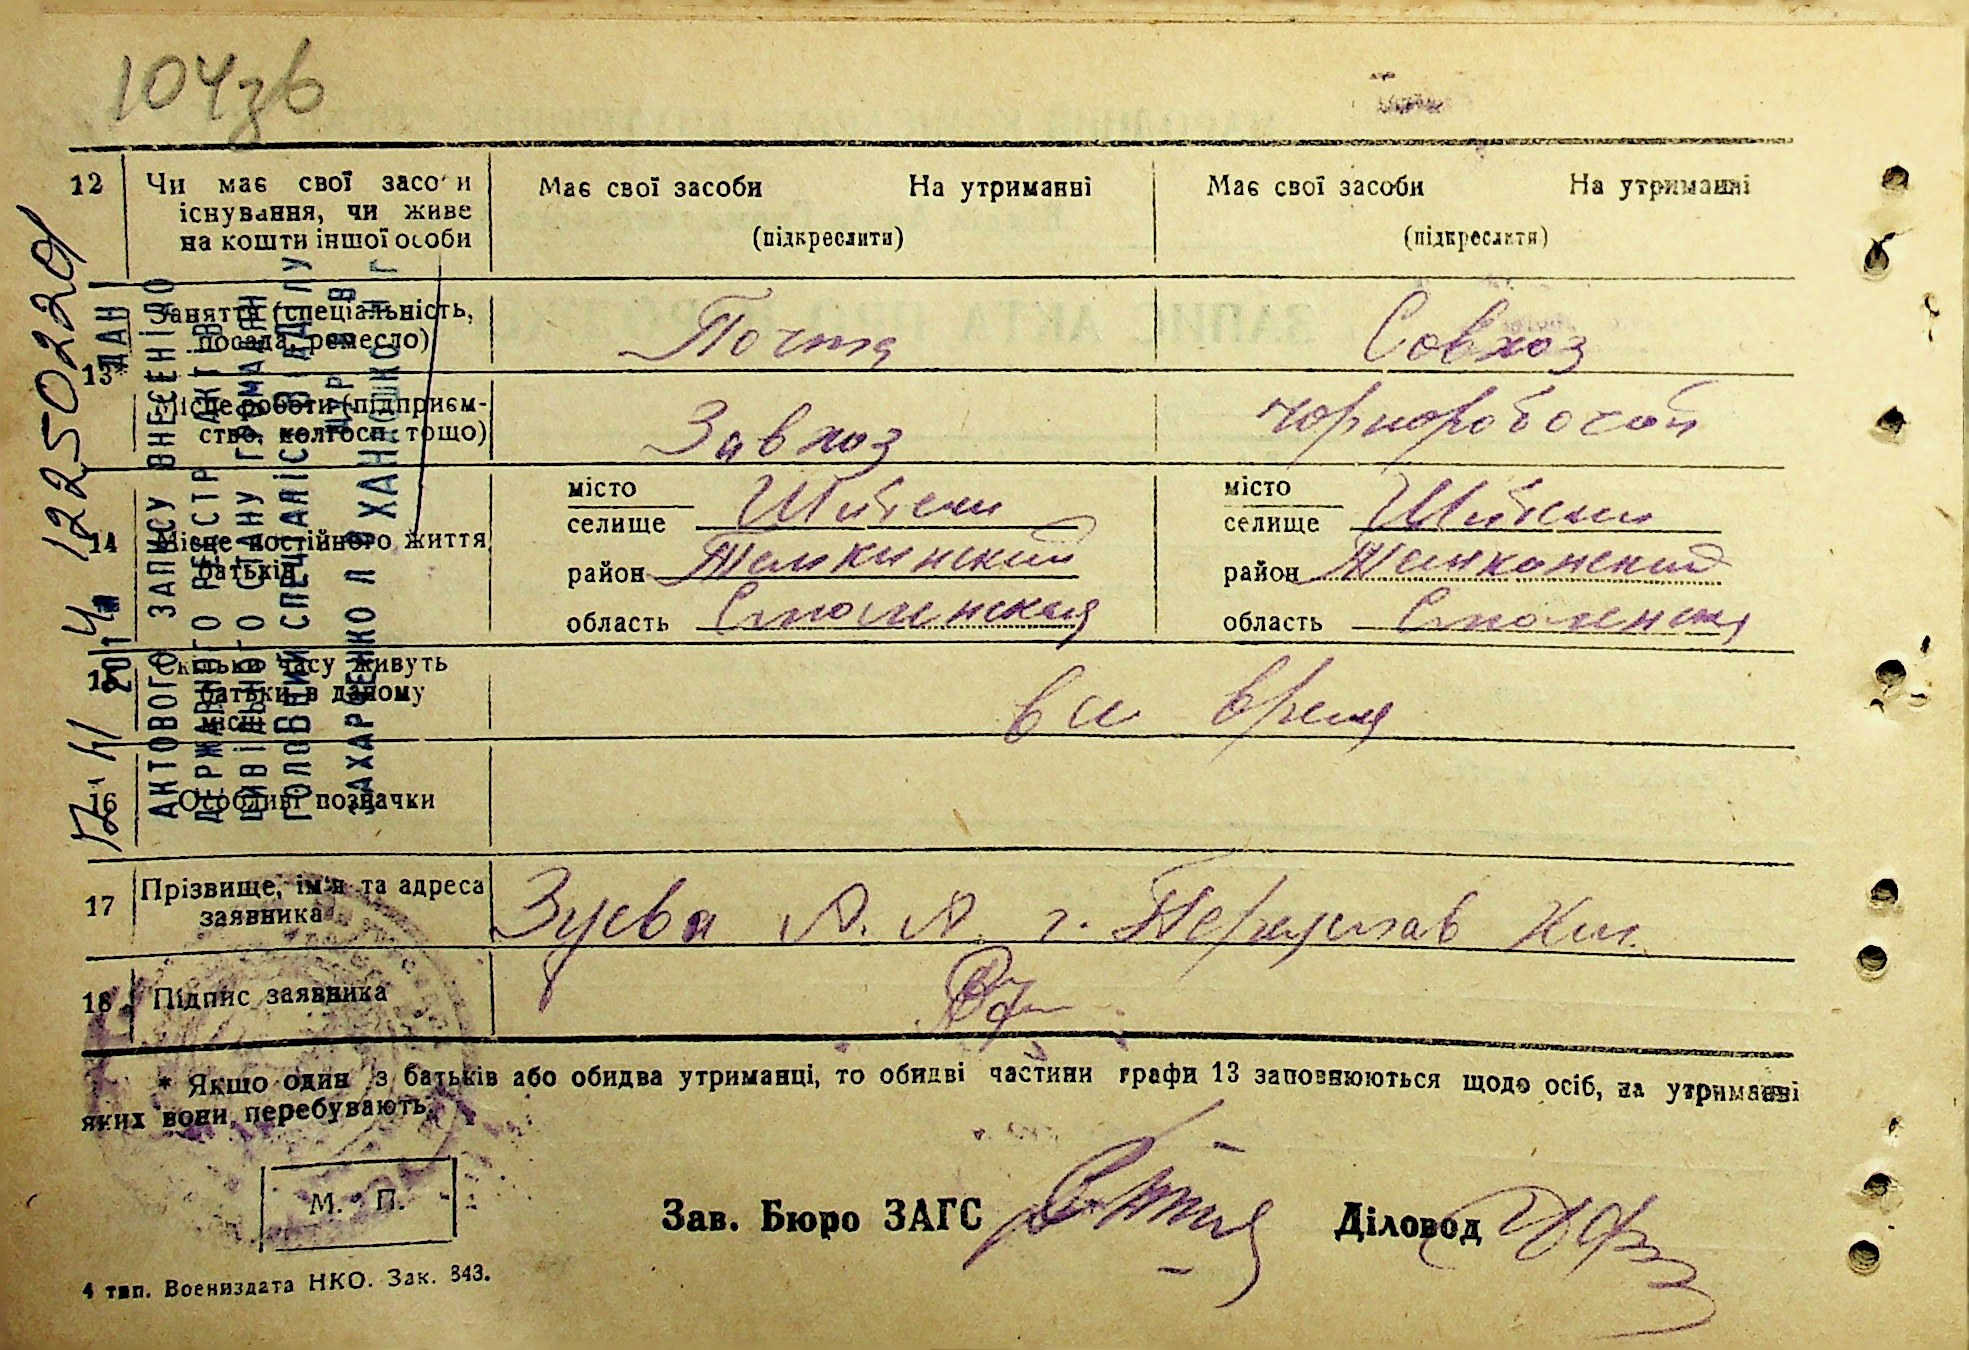 104зв
12 Чи має свої засоби існування, чи живе на кошти іншої особи
Має свої засоби На утриманні
(підкреслити)
Має свої засоби На утриманні
(підкреслити)
13*
Заняття (спеціальність, посада, ремесло)
Почта
Совхоз
Місце роботи (підприємство, колгосп, тощо)
Завхоз
чорноробочий
14 Місце постійного життя батьків
місто
селище
район
область Смоленская
місто
селище
район
область Смоленская
15 Скільки часу живуть батьки в даному місці
все время
16 Особливі позначки
17 Прізвище, ім'я та адреса заявника
Зуева А. А. г. Переяслав Хм.
18 Підпис заявника
* Якщо один з батьків або обидва утриманці, то обидві частини графи 13 заповнюються щодо осіб, на утриманні
яких вони перебувають.
М. П.
Зав. Бюро ЗАГС
Діловод
4 тип. Воениздата НКО. Зак. 843.
12250220
2014
ДАНІ
АКТОВОГО ЗАПИСУ ВНЕСЕНІ ДО
ДЕРЖАВНОГО РЕЄСТР АКТІВ
ЦИВІЛЬНОГО СТАНУ ГРОМАДЯН
ГОЛОВНИЙ СПЕЦІАЛІСТ ВІДДІЛУ
ЗАХАРЧЕНКО Л В